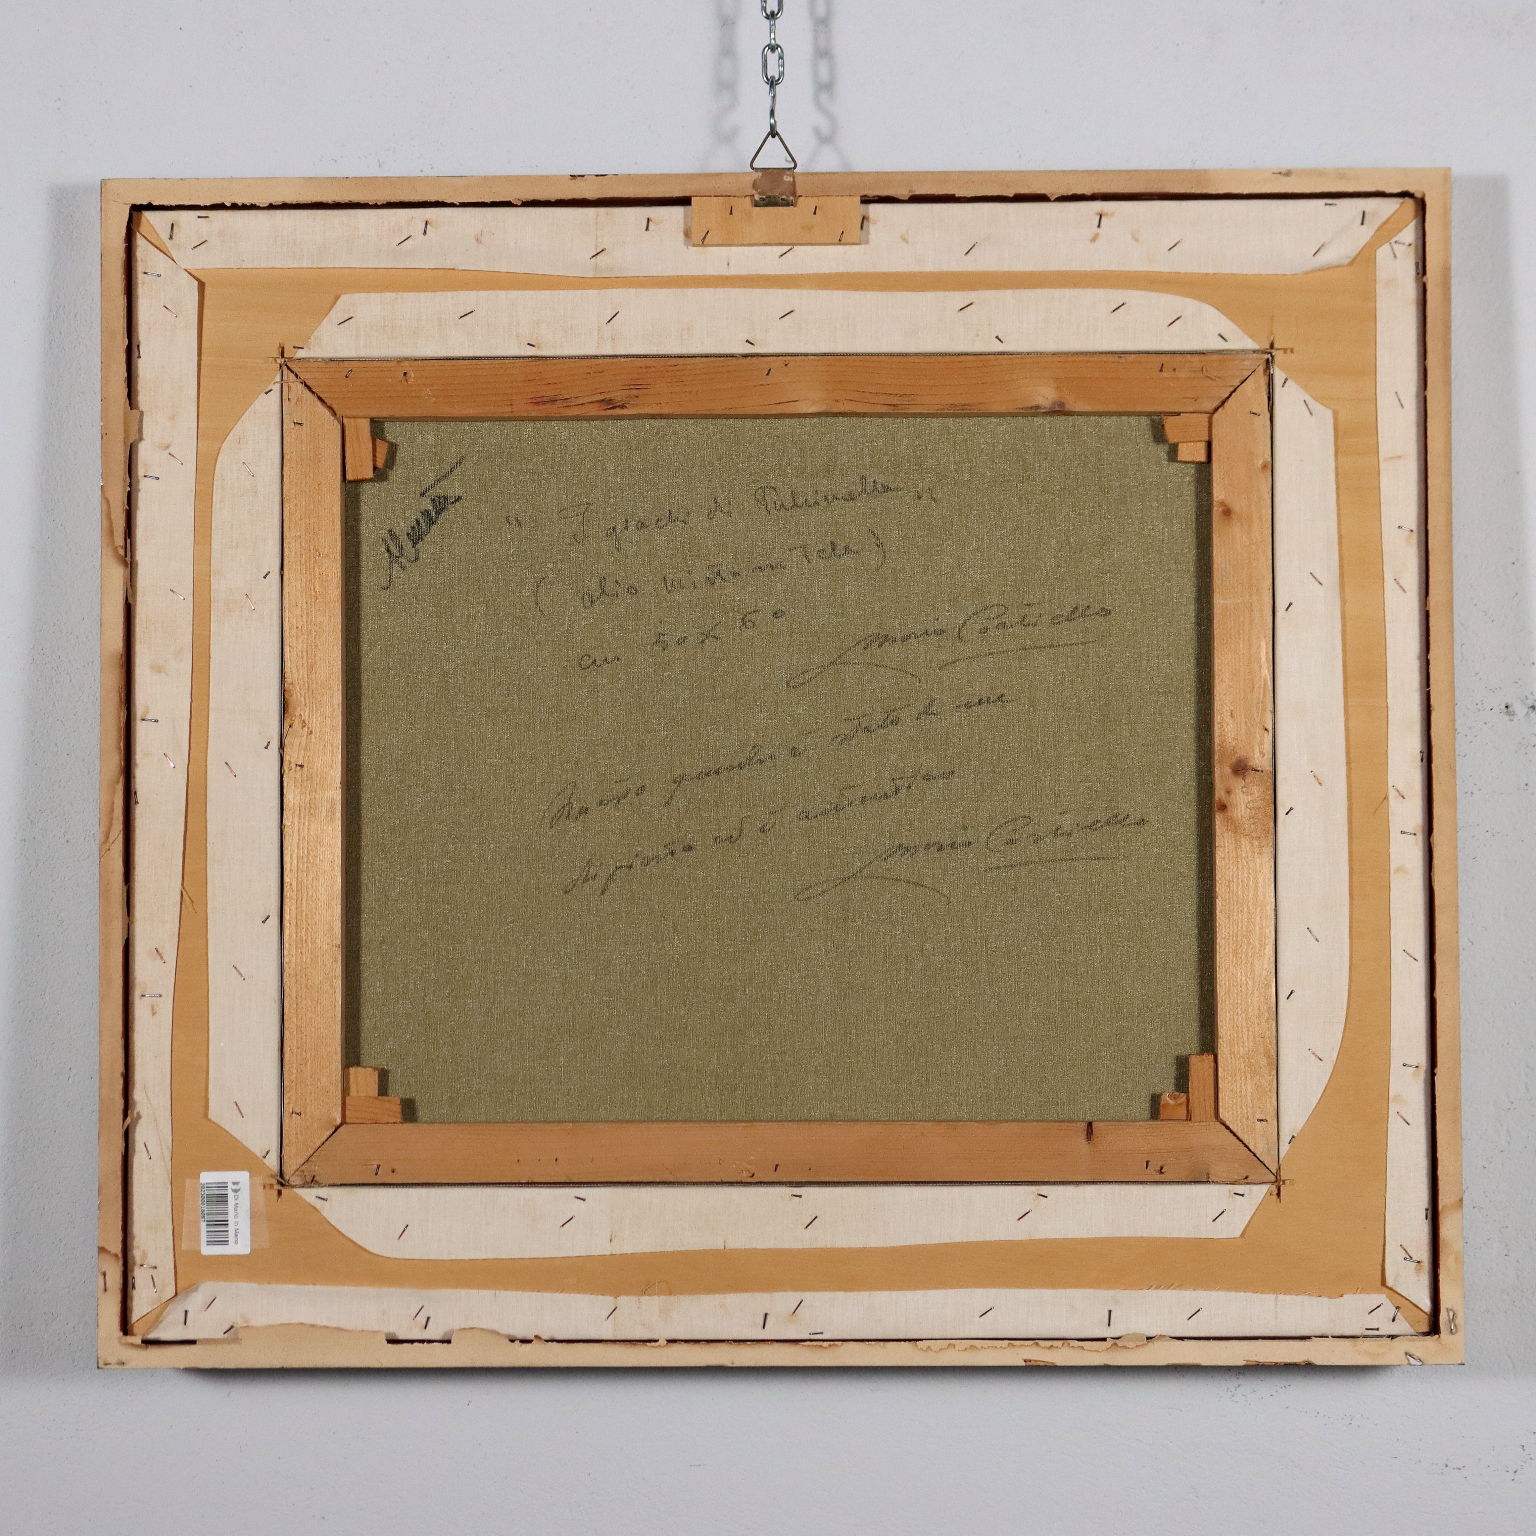 " I giochi di Pulcinella "
( olio misto su Tela )
cm 50 x 60
Mario Cortiello
Questo quadro è stato da me
dipinto ed è autentico
Mario Cortiello
Di Mano in Mano